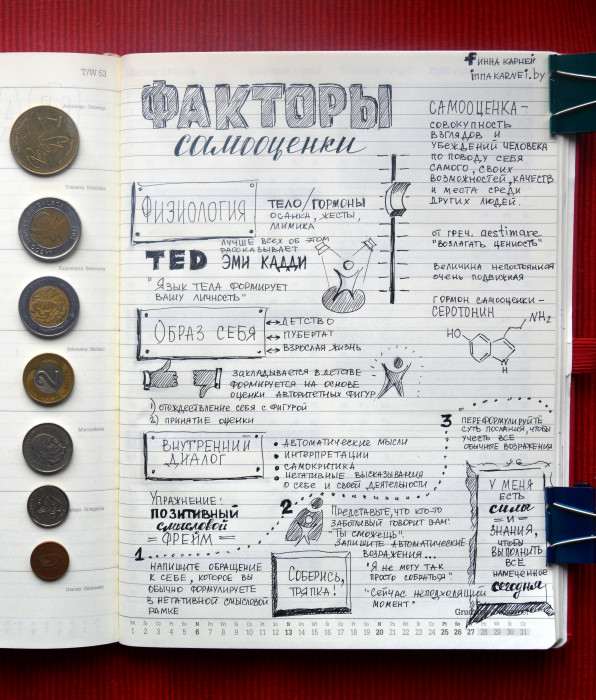 T/W 53
f ИННА КАРНЕЙ
INNAKARNEI.by
ФАКТОРЫ
самооценки
САМООЦЕНКА –
СОВОКУПНОСТЬ
ВЗГЛЯДОВ И
УБЕЖДЕНИЙ ЧЕЛОВЕКА
ПО ПОВОДУ СЕБЯ
САМОГО, СВОИХ
ВОЗМОЖНОСТЕЙ, КАЧЕСТВ
И МЕСТА СРЕДИ
ДРУГИХ ЛЮДЕЙ.
ОТ ГРЕЧ. aestimare
"ВОЗЛАГАТЬ ЦЕННОСТЬ"
ВЕЛИЧИНА НЕПОСТОЯННАЯ
ОЧЕНЬ ПОДВИЖНАЯ
ГОРМОН САМООЦЕНКИ –
СЕРОТОНИН
NH2
HO
N
H
ФИЗИОЛОГИЯ
ТЕЛО/ГОРМОНЫ
ОСАНКА, ЖЕСТЫ,
МИМИКА
ЛУЧШЕ ВСЕХ ОБ ЭТОМ
РАССКАЗЫВАЕТ
TED ЭМИ КАДДИ
"ЯЗЫК ТЕЛА ФОРМИРУЕТ
ВАШУ ЛИЧНОСТЬ"
ОБРАЗ СЕБЯ
ДЕТСТВО
ПУБЕРТАТ
ВЗРОСЛАЯ ЖИЗНЬ
ЗАКЛАДЫВАЕТСЯ В ДЕТСТВЕ
ФОРМИРУЕТСЯ НА ОСНОВЕ
ОЦЕНКИ АВТОРИТЕТНЫХ ФИГУР
1) ОТОЖДЕСТВЛЕНИЕ СЕБЯ С ФИГУРОЙ
2) ПРИНЯТИЕ ОЦЕНКИ
ВНУТРЕННИЙ
ДИАЛОГ
• АВТОМАТИЧЕСКИЕ МЫСЛИ
• ИНТЕРПРЕТАЦИИ
• САМОКРИТИКА
• НЕГАТИВНЫЕ ВЫСКАЗЫВАНИЯ
О СЕБЕ И СВОЕЙ ДЕЯТЕЛЬНОСТИ
УПРАЖНЕНИЕ:
ПОЗИТИВНЫЙ
смысловой
= ФРЕЙМ =
1
НАПИШИТЕ ОБРАЩЕНИЕ
К СЕБЕ, КОТОРОЕ ВЫ
ОБЫЧНО ФОРМУЛИРУЕТЕ
В НЕГАТИВНОЙ СМЫСЛОВОЙ
РАМКЕ
СОБЕРИСЬ,
ТРЯПКА!
2
ПРЕДСТАВЬТЕ, ЧТО КТО-ТО
ЗАБОТЛИВЫЙ ГОВОРИТ ВАМ:
"ТЫ СМОЖЕШЬ".
ЗАПИШИТЕ АВТОМАТИЧЕСКИЕ
ВОЗРАЖЕНИЯ...
"Я НЕ МОГУ ТАК
ПРОСТО СОБРАТЬСЯ"
"СЕЙЧАС НЕПОДХОДЯЩИЙ
МОМЕНТ"
3
ПЕРЕФОРМУЛИРУЙТЕ
СУТЬ ПОСЛАНИЯ, ЧТОБЫ
УЧЕСТЬ ВСЕ
ОБЫЧНЫЕ ВОЗРАЖЕНИЯ
У МЕНЯ
ЕСТЬ
силы
= И =
ЗНАНИЯ,
ЧТОБЫ
ВЫПОЛНИТЬ
ВСЁ
НАМЕЧЕННОЕ
сегодня
1 2 3 4 5 6 7 8 9 10 11 12 13 14 15 16 17 18 19 20 21 22 23 24 25 26 27 28 29 30 31